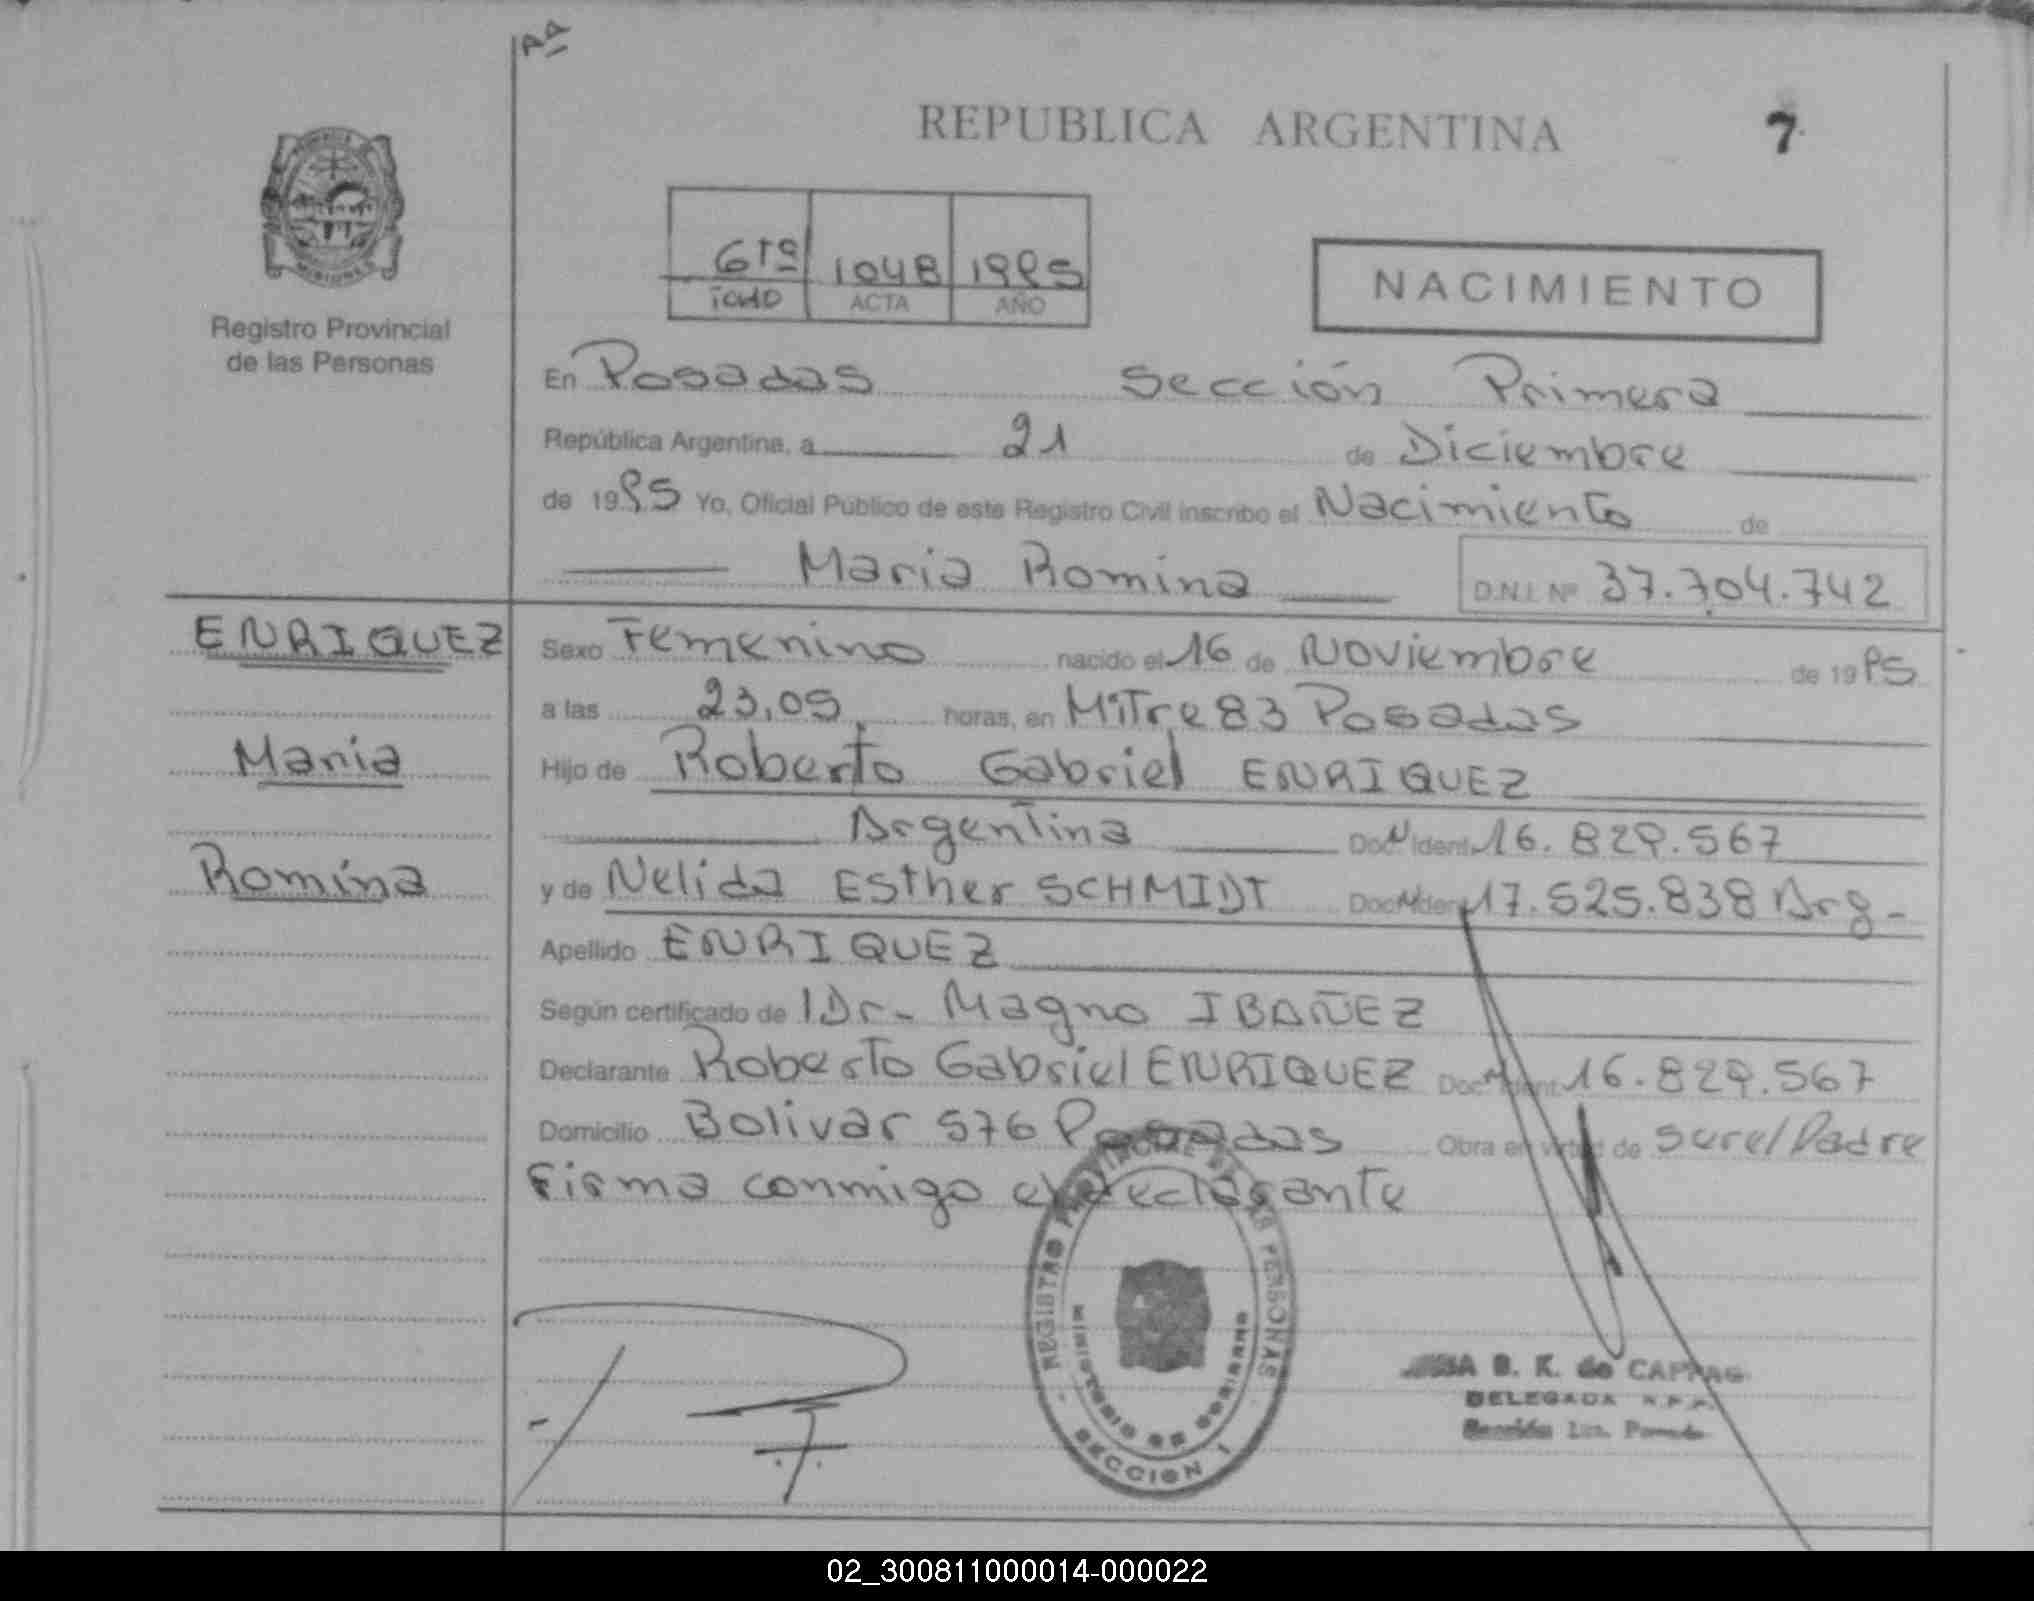 AA
REPUBLICA ARGENTINA
7
MISIONES
Registro Provincial
de las Personas
6to 1048 1995
TOMO ACTA AÑO
NACIMIENTO
En Posadas Sección Primera
República Argentina, a 21 de Diciembre
de 1995 Yo, Oficial Público de este Registro Civil inscribo el Nacimiento de
Maria Romina D.N.I. Nº 37.704.742
ENRIQUEZ
Maria
Romina
Sexo Femenino nacido el 16 de Noviembre de 1995
a las 23,05, horas, en Mitre 83 Posadas
Hijo de Roberto Gabriel ENRIQUEZ
Argentina Doc. N Ident. 16.829.567
y de Nelida Esther SCHMIDT Doc. N Ident. 17.525.838 Arg-
Apellido ENRIQUEZ
Según certificado de Dr- Magno IBAÑEZ
Declarante Roberto Gabriel ENRIQUEZ Doc. N Ident. 16.829.567
Domicilio Bolivar 576 Posadas Obra en virtud de ser el Padre
Firma conmigo el declarante
REGISTRO PROVINCIAL DE LAS PERSONAS
MINISTERIO DE GOBIERNO
SECCION 1
B. K. de
DELEGADA R.P.P.
Sección 1ra. Posadas
02_300811000014-000022